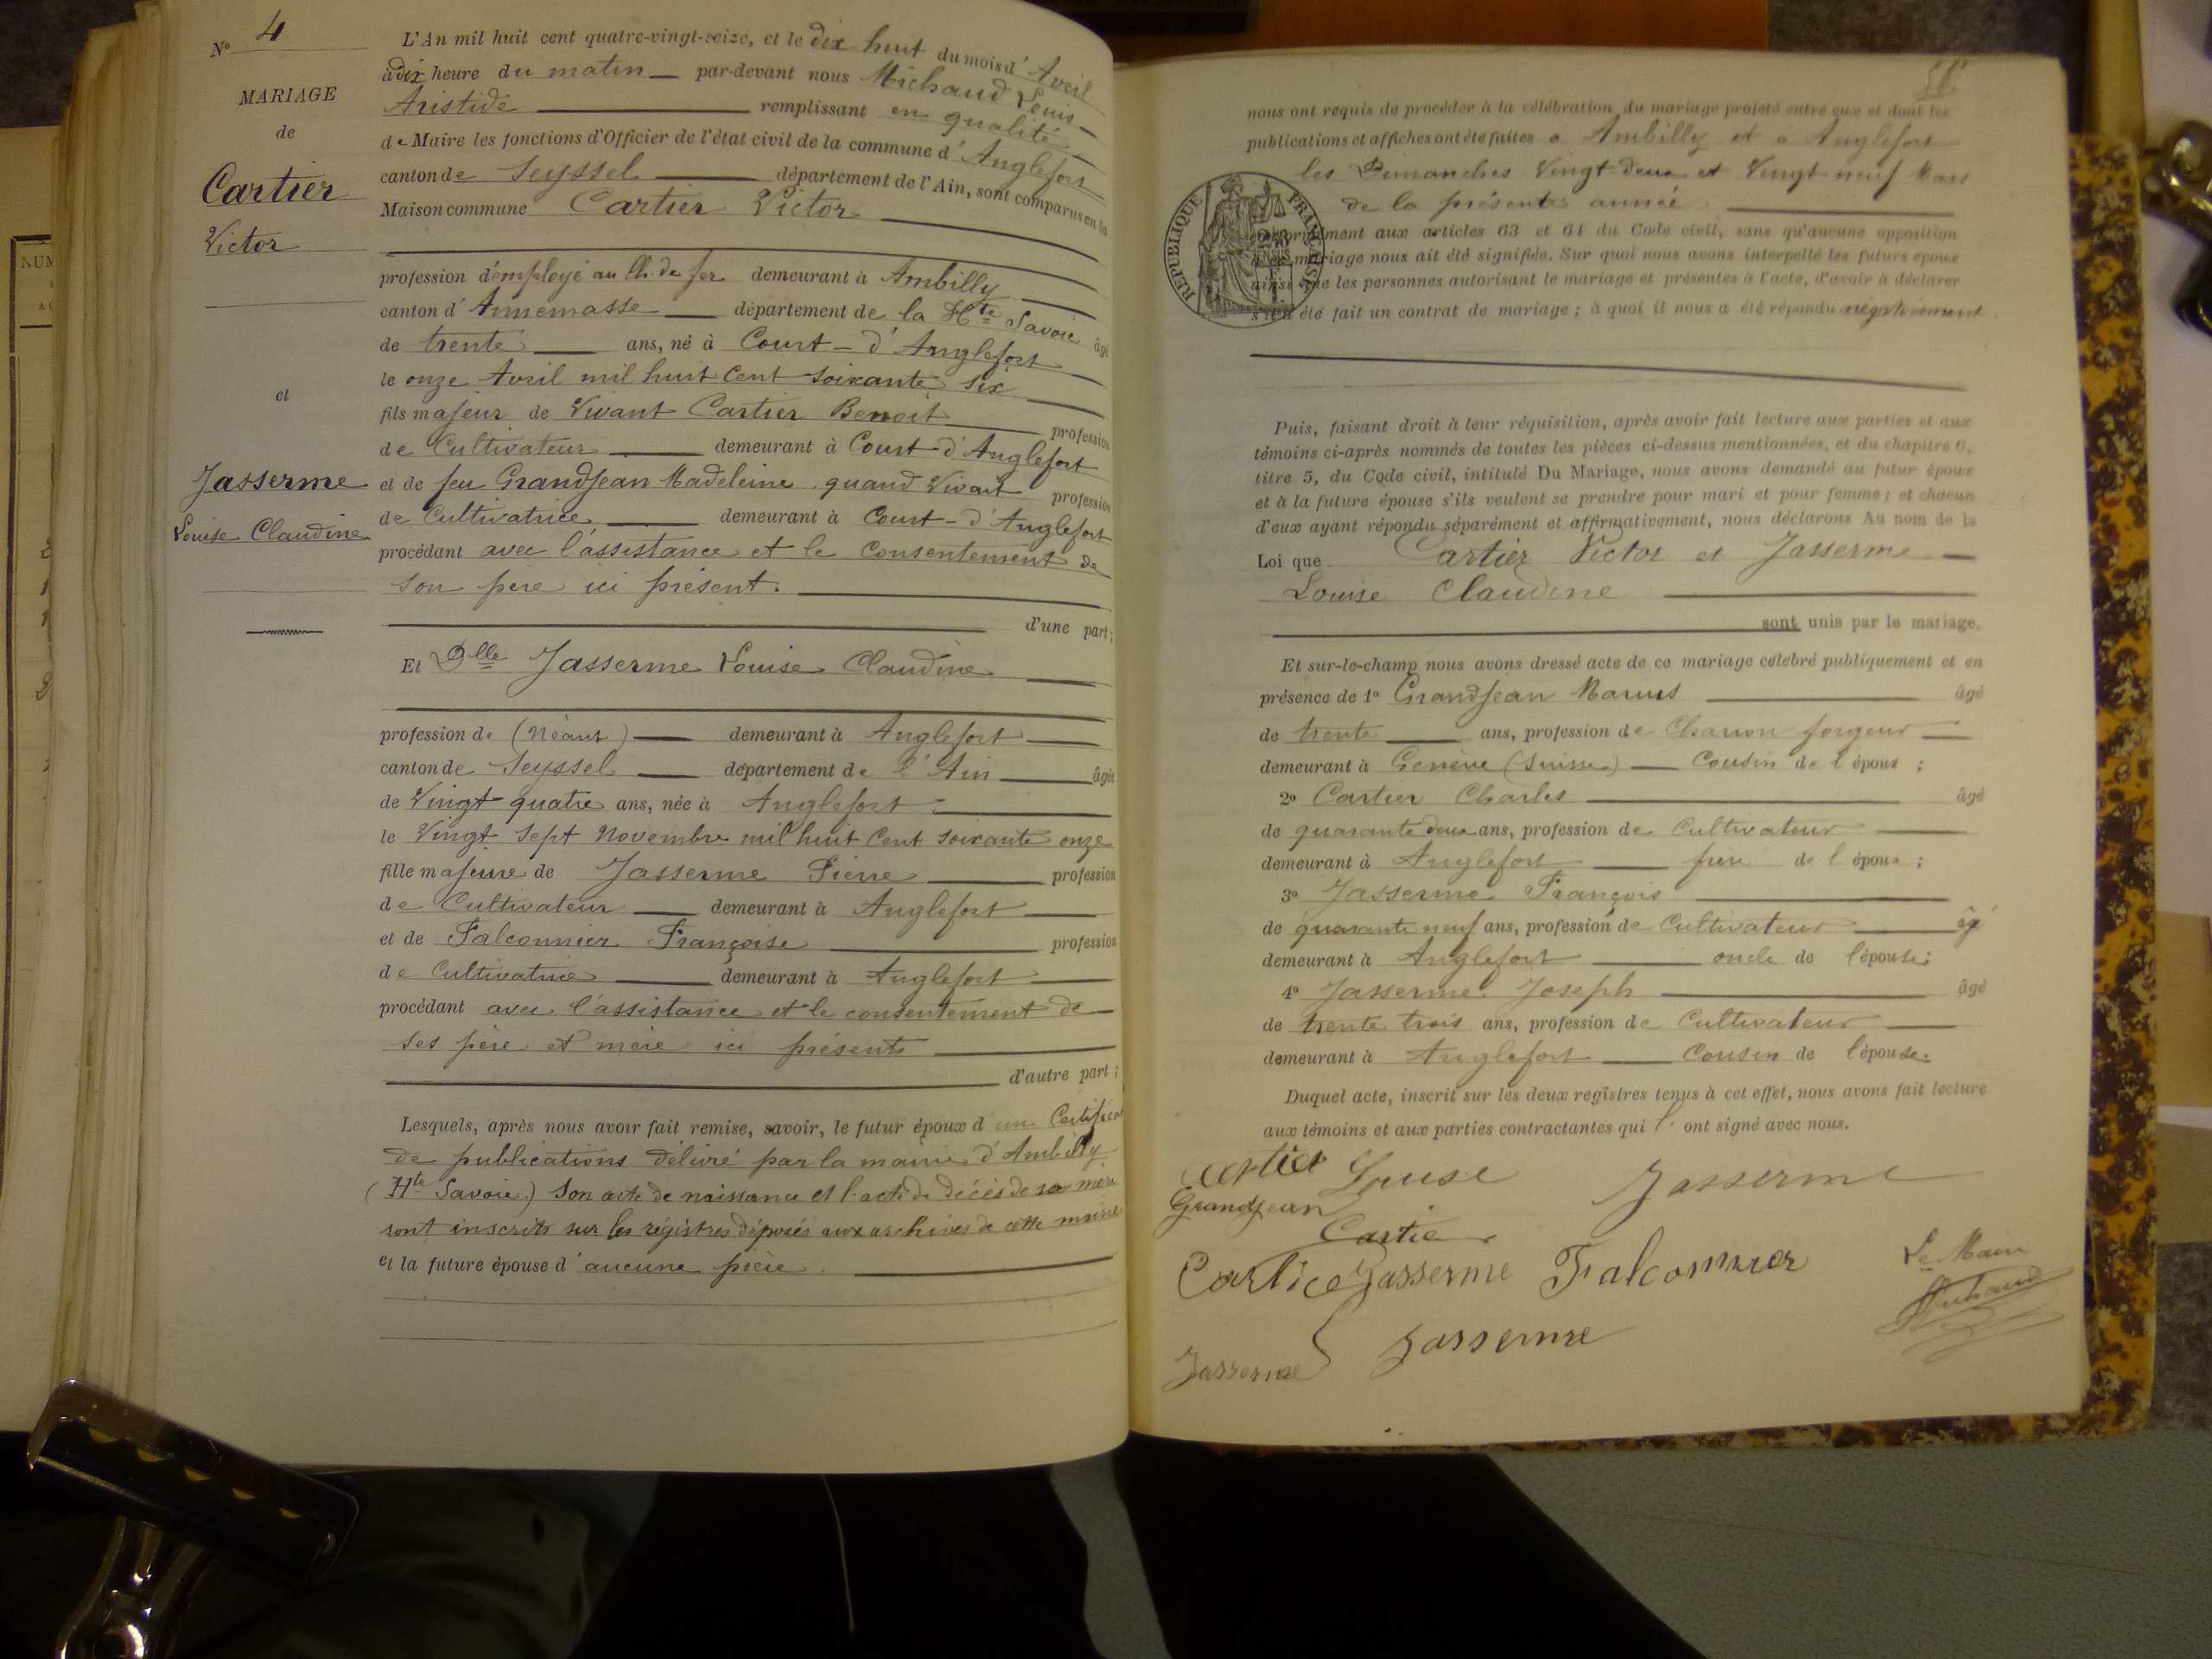 Nº 4
MARIAGE
de
Cartier
Victor
et
Jasserme
Louise Claudine
L'An mil huit cent quatre-vingt-seize, et le dix huit du mois d'Avril
à dix heure du matin par-devant nous Michaud Louis
Aristide remplissant en qualité
de Maire les fonctions d'Officier de l'état civil de la commune d'Anglefort
canton de Seyssel département de l'Ain, sont comparus en la
Maison commune Cartier Victor
profession d'employé au Ch. de fer demeurant à Ambilly
canton d'Annemasse département de la Hte Savoie âgé
de trente ans, né à Court-d'Anglefort
le onze Avril mil huit cent soixante six
fils majeur de Vivant Cartier Benoit profession
de Cultivateur demeurant à Court-d'Anglefort
et de feu Grandjean Madeleine quand Vivait profession
de Cultivatrice demeurant à Court-d'Anglefort
procédant avec l'assistance et le consentement de
son père ici présent.
d'une part;
Et Dlle Jasserme Louise Claudine
profession de (Néant) demeurant à Anglefort
canton de Seyssel département de l'Ain âgée
de Vingt quatre ans, née à Anglefort
le Vingt Sept Novembre mil huit Cent soixante onze
fille majeure de Jasserme Pierre profession
de Cultivateur demeurant à Anglefort
et de Falconnier Françoise profession
de Cultivatrice demeurant à Anglefort
procédant avec l'assistance et le consentement de
ses père et mère ici présents
d'autre part;
Lesquels, après nous avoir fait remise, savoir, le futur époux d'un Certificat
de publications délivré par la mairie d'Ambilly
(Hte Savoie) Son acte de naissance et l'acte de décès de sa mère
sont inscrits sur les régistres déposés aux archives de cette mairie
et la future épouse d'aucune pièce.
nous ont requis de procéder à la célébration du mariage projeté entre eux et dont les
publications et affiches ont été faites à Ambilly et à Anglefort
les Dimanches Vingt-deux et Vingt-neuf Mars
de la présente année.
RÉPUBLIQUE FRANÇAISE
conformément aux articles 63 et 64 du Code civil, sans qu'aucune opposition
mariage nous ait été signifiée. Sur quoi nous avons interpellé les futurs époux
ainsi que les personnes autorisant le mariage et présentes à l'acte, d'avoir à déclarer
s'il a été fait un contrat de mariage; à quoi il nous a été répondu négativement.
Puis, faisant droit à leur réquisition, après avoir fait lecture aux parties et aux
témoins ci-après nommés de toutes les pièces ci-dessus mentionnées, et du chapitre 6,
titre 5, du Code civil, intitulé Du Mariage, nous avons demandé au futur époux
et à la future épouse s'ils veulent se prendre pour mari et pour femme; et chacun
d'eux ayant répondu séparément et affirmativement, nous déclarons Au nom de la
Loi que Cartier Victor et Jasserme
Louise Claudine
sont unis par le mariage.
Et sur-le-champ nous avons dressé acte de ce mariage célébré publiquement et en
présence de 1º Grandjean Marius âgé
de trente ans, profession de Charron forgeur
demeurant à Genève (Suisse) Cousin de l'époux;
2º Cartier Charles âgé
de quarante deux ans, profession de Cultivateur
demeurant à Anglefort frère de l'époux;
3º Jasserme François
de quarante neuf ans, profession de Cultivateur âgé
demeurant à Anglefort oncle de l'épouse;
4º Jasserme Joseph âgé
de trente trois ans, profession de Cultivateur
demeurant à Anglefort Cousin de l'épouse.
Duquel acte, inscrit sur les deux registres tenus à cet effet, nous avons fait lecture
aux témoins et aux parties contractantes qui l'ont signé avec nous.
Cartier Louise Jasserme
Grandjean
Cartie
Cartier Jasserme Falconnier Le Maire
Michaud
Jasserme Jasserme